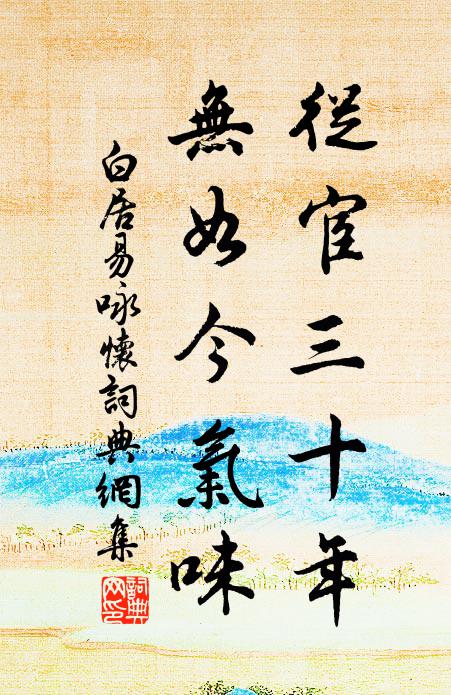 從宦三十年
無如今氣味
白居易咏懷詞典網集